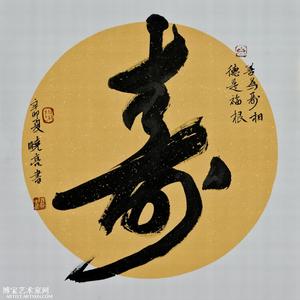 善為壽相
德是福根
壽
辛卯夏曉亮書
博宝艺术家网
ARTIST.ARTXUN.COM